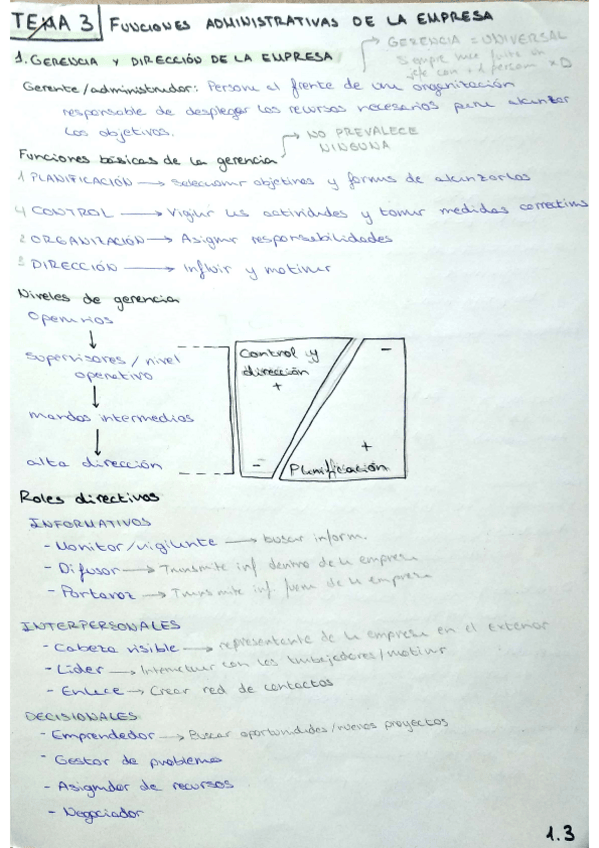 TEMA 3 FUNCIONES ADMINISTRATIVAS DE LA EMPRESA
1. GERENCIA Y DIRECCIÓN DE LA EMPRESA
→ GERENCIA = UNIVERSAL
Siempre hace falta un
jefe con
Gerente/administrador: Persona al frente de una organización
responsable de desplegar los recursos necesarios para alcanzar
los objetivos.
→ NO PREVALECE
NINGUNA
Funciones básicas de la gerencia
1 PLANIFICACIÓN → seleccionar objetivos y formas de alcanzarlos
4 CONTROL → Vigilar las actividades y tomar medidas correctivas
2 ORGANIZACIÓN → Asignar responsabilidades
3 DIRECCIÓN → Influir y motivar
Niveles de gerencia
Operarios
↓
supervisores / nivel
operativo
↓
mandos intermedios
↓
alta dirección
Control y
dirección
+
-
-
+
Planificación
Roles directivos
INFORMATIVOS
- Monitor/vigilante → buscar inform.
- Difusor → Transmite inf dentro de la empresa
- Portavoz → Transmite inf. fuera de la empresa
INTERPERSONALES
- Cabeza visible → representante de la empresa en el exterior
- Líder → Interactuar con los trabajadores/motivar
- Enlace → Crear red de contactos
DECISIONALES
- Emprendedor → Buscar oportunidades/nuevos proyectos
- Gestor de problemas
- Asignador de recursos
- Negociador
1.3